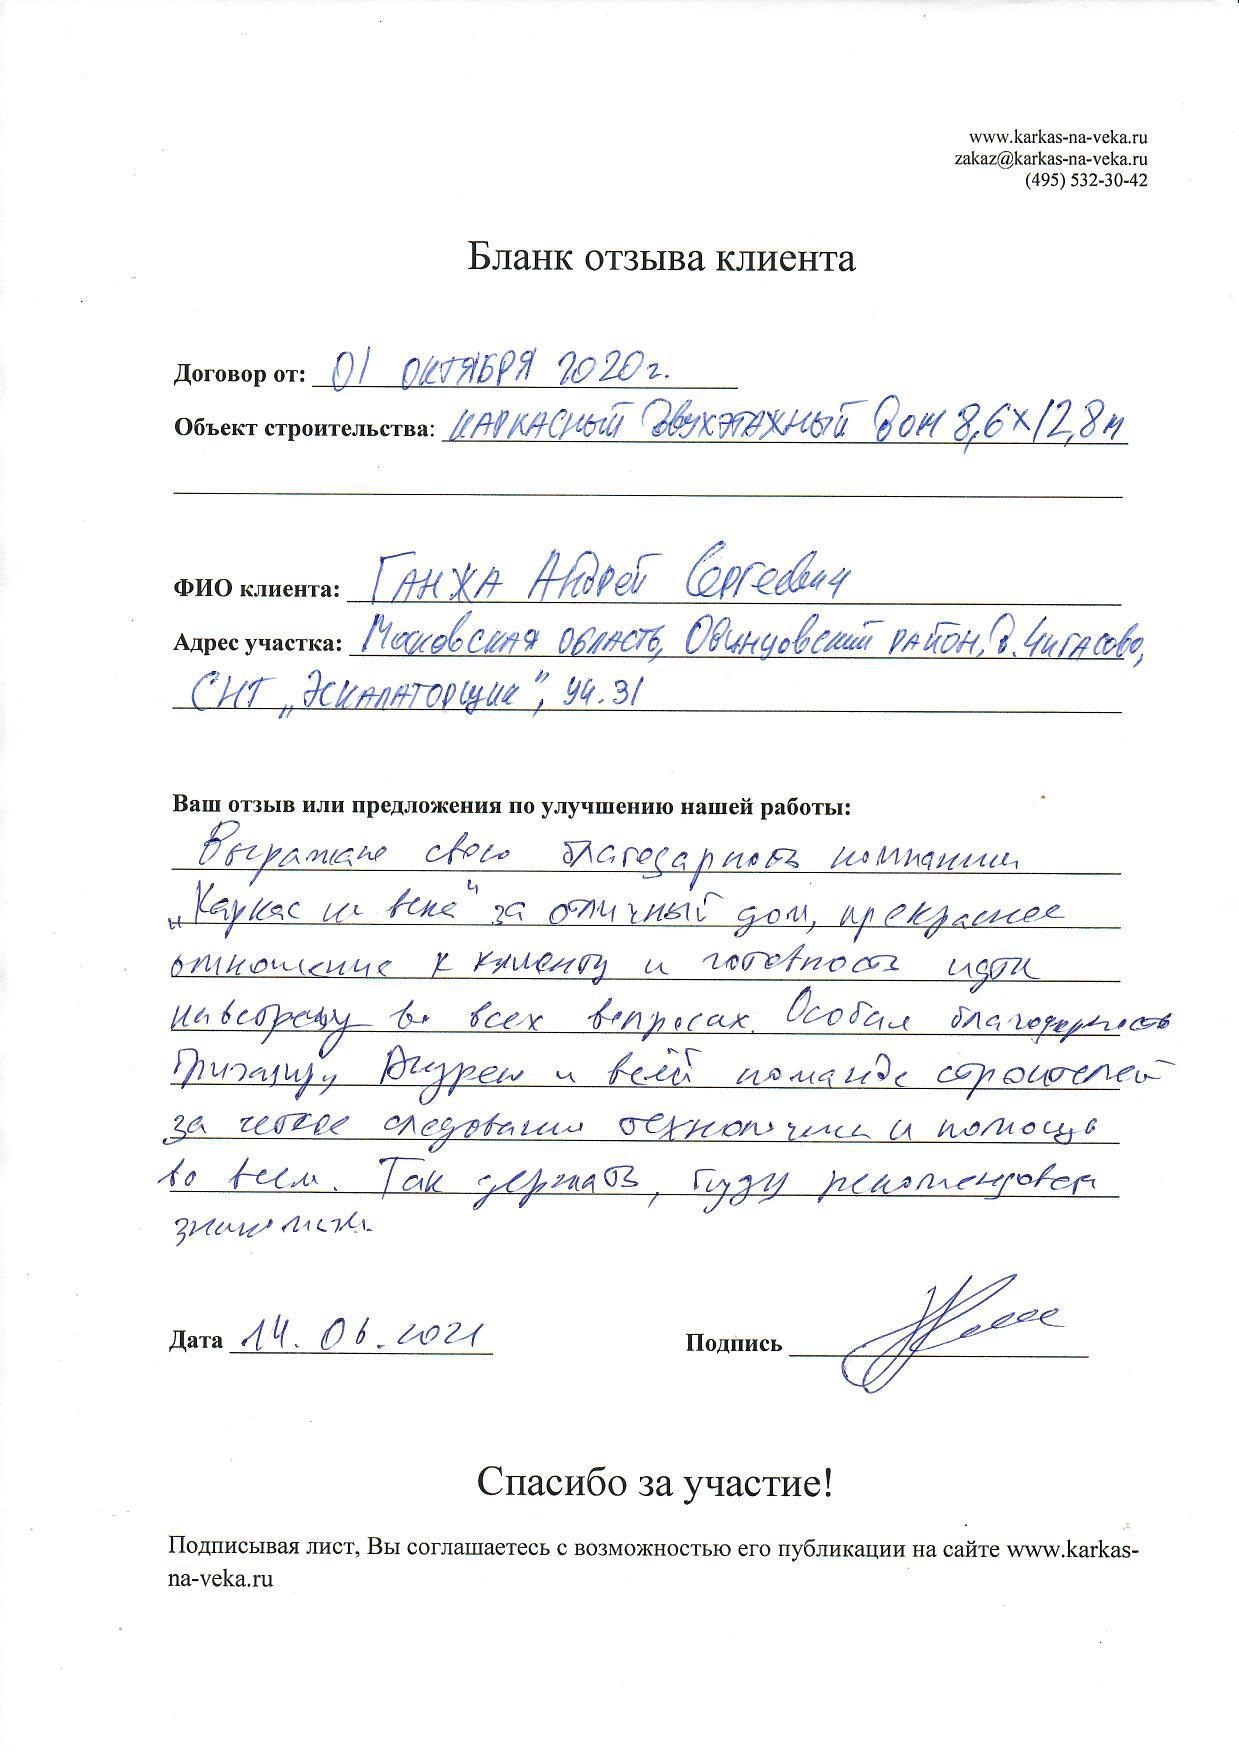 www.karkas-na-veka.ru
zakaz@karkas-na-veka.ru
(495) 532-30-42
Бланк отзыва клиента
Договор от: 01 ОКТЯБРЯ 2020г.
Объект строительства: КАРКАСНЫЙ ДВУХЭТАЖНЫЙ ДОМ 8,6х12,8м
ФИО клиента: ГАНЖА АНДРЕЙ Сергеевич
Адрес участка: Московская область, Одинцовский район, д. Чигасово,
СНТ „Эскалаторщик", уч. 31
Ваш отзыв или предложения по улучшению нашей работы:
Выражаю свою благодарность компании
„Каркас на века" за отличный дом, прекрасное
отношение к клиенту и готовность идти
навстречу во всех вопросах. Особая благодарность
Андрею и всей команде строителей
за четкое следование технологии и помощь
во всем. Так держать, буду рекомендовать
знакомым.
Дата 14.06.2021 Подпись
Спасибо за участие!
Подписывая лист, Вы соглашаетесь с возможностью его публикации на сайте www.karkas-
na-veka.ru